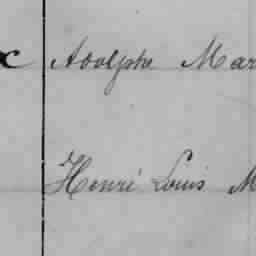 x Adolphe Mar
Henri Louis M